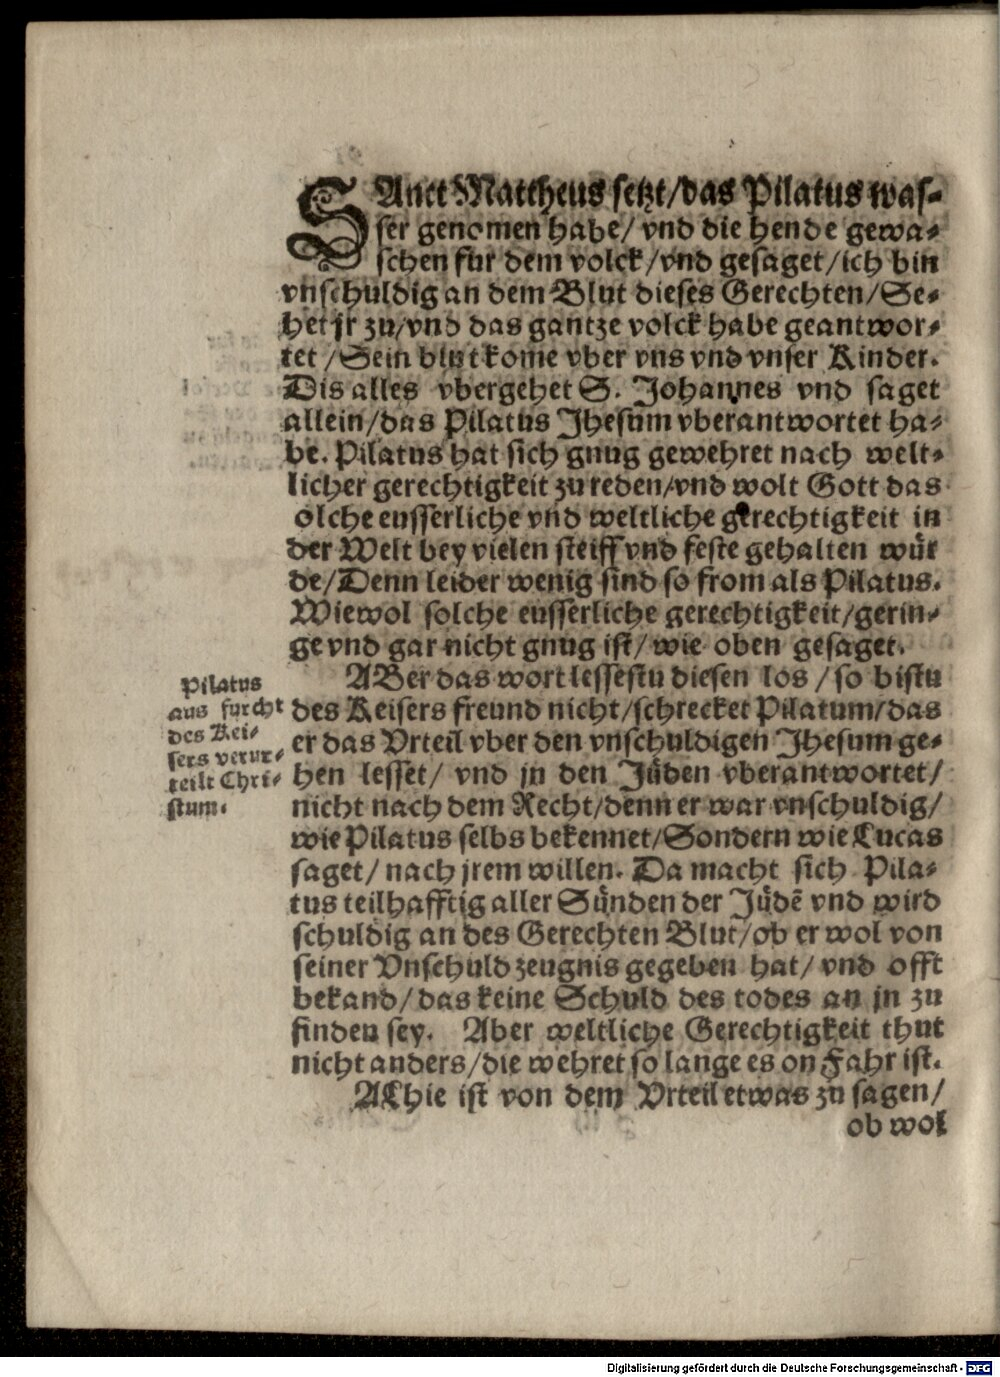 SAnct Mattheus setzt/das Pilatus was-
ser genomen habe/ vnd die hende gewa-
schen fur dem volck/vnd gesaget/ich bin
vnschuldig an dem Blut dieses Gerechten/Se-
het jr zu/vnd das gantze volck habe geantwor-
tet/Sein blut kome vber vns vnd vnser Kinder.
Dis alles vbergehet S. Johannes vnd saget
allein/das Pilatus Jhesum vberantwortet ha-
be. Pilatus hat sich gnug gewehret nach welt-
licher gerechtigkeit zu reden/vnd wolt Gott das
olche eusserliche vnd weltliche gerechtigkeit in
der Welt bey vielen steiff vnd feste gehalten wür
de/Denn leider wenig sind so from als Pilatus.
Wiewol solche eusserliche gerechtigkeit/gerin-
ge vnd gar nicht gnug ist/ wie oben gesaget.
ABer das wort lessestu diesen los/so bistu
des Keisers freund nicht/schrecket Pilatum/das
er das Vrteil vber den vnschuldigen Jhesum ge-
hen lesset/ vnd jn den Jüden vberantwortet/
nicht nach dem Recht/denn er war vnschuldig/
wie Pilatus selbs bekennet/Sondern wie Lucas
saget/ nach jrem willen. Da macht sich Pila-
tus teilhafftig aller Sünden der Jüdē vnd wird
schuldig an des Gerechten Blut/ob er wol von
seiner Vnschuld zeugnis gegeben hat/ vnd offt
bekand/das keine Schuld des todes an jn zu
finden sey. Aber weltliche Gerechtigkeit thut
nicht anders/die wehret so lange es on Fahr ist.
ALhie ist von dem Vrteil etwas zu sagen/
ob wol
Pilatus
aus furcht
des Kei-
sers verur-
teilt Chri-
stum.
Digitalisierung gefördert durch die Deutsche Forschungsgemeinschaft - DFG